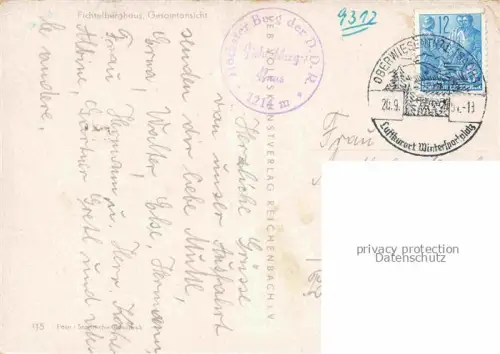 Fichtelberghaus, Gesamtansicht
9312
Höchster Berg der D.D.R.
Fichtelberg-
Haus
1214 m
12
OBERWIESENTHAL
20.9.
-13
Luftkurort Wintersportplatz
VEB VOLKSKUNSTVERLAG REICHENBACH I. V.
Herzliche Grüsse
von unser Ausfahrt
senden dir liebe Muttl,
Erna! Walter! Else, Hermann,
Frau! Hermann u. Herr Köhler
Albine, Gärtner Gretl und
Frau
privacy protection
Datenschutz
115
Foto: